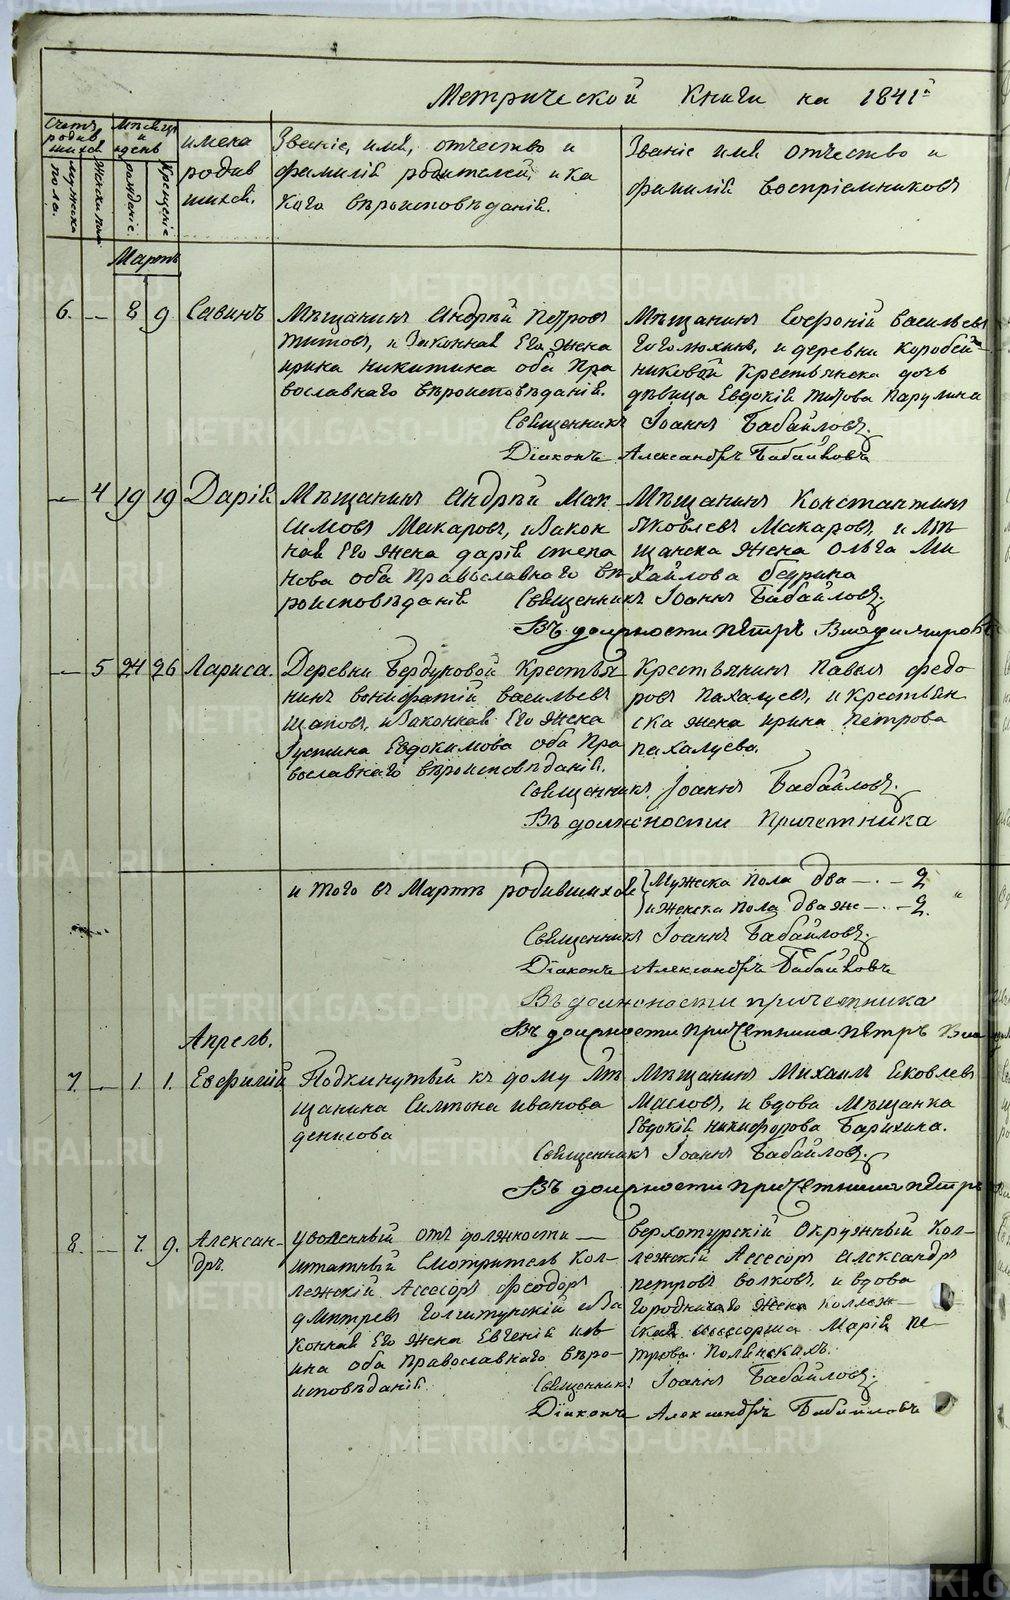 Метрической Книги на 1841й
Счетъ родившихся
Мѣсяцъ и день
имена родившихся.
Званіе, имя, отчество и фамилія родителей, и какого вѣроисповѣданія.
Званіе имя отчество и фамилія воспріемниковъ
Мужска пола.
Женска пола
рожденіе.
Крещеніе
Мартъ
6. — 8 9 Савинъ
Мѣщанинъ Андрей Петровъ
Титовъ, и Законная Его Жена
ирина никитина оба Пра
вославнаго вѣроисповѣданія.
Мѣщанинъ Софроній васильевъ
Гоголюхинъ, и деревни Коробей
никовой Крестьянска дочь
дѣвица Евдокія титова Парулина
Священникъ Іоаннъ Бабайловъ.
Діаконъ Александръ Бабайловъ
— 4 19 19 Дарія
Мѣщанинъ Андрей Мак
симовъ Макаровъ, и Закон
ная Его Жена дарія степа
нова оба Православнаго вѣ
роисповѣданія
Мѣщанинъ Константинъ
Яковлевъ Макаровъ, и Мѣ
щанска Жена Ольга Ми
хайлова
Священникъ Іоаннъ Бабайловъ.
Въ должности Петръ Владимировъ
— 5 24 26 Лариса.
Деревни Бердюковой Крестья
нинъ вонифатій васильевъ
Щаповъ, и Законная Его Жена
Іустина Евдокимова оба Пра
вославнаго вѣроисповѣданія.
Крестьянинъ Павелъ федо
ровъ Пахалуевъ, и Крестьян
ска жена ирина Петрова
пахалуева.
Священникъ Іоаннъ Бабайловъ.
Въ должности Причетника
и того въ Мартѣ родившихся
Мужска пола два — . — 2
и Женска пола два же — . — 2.
Священникъ Іоаннъ Бабайловъ.
Діаконъ Александръ Бабайловъ
Въ должности причетника
Въ должности Причетника Петръ Вла
Апрель.
7. — 1. 1. Евфимій
Подкинутый къ дому Мѣ
щанина Симеона иванова
денисова
Мѣщанинъ Михаилъ Яковлевъ
Масловъ, и вдова Мѣщанка
Евдокія никифорова Барихина.
Священникъ Іоаннъ Бабайловъ.
Въ должности Причетника Петръ
8. — 7. 9. Алексан-
дръ.
уволенный отъ должности —
штатный Смотритель Кол
лежскій Ассесоръ Феодоръ
дмитревъ Голштурскій и За
конная Его Жена Евгенія
ина оба Православнаго вѣро-
исповѣданія
верхотурскій Окружный Кол-
лежскій Ассесоръ Александръ
петровъ волковъ, и вдова
Городничаго Жена Коллеж-
ская ассесорша Марія Пе-
трова Полинскихъ.
Священникъ Іоаннъ Бабайловъ.
Діаконъ Александръ Бабайловъ
METRIKI.GASO-URAL.RU